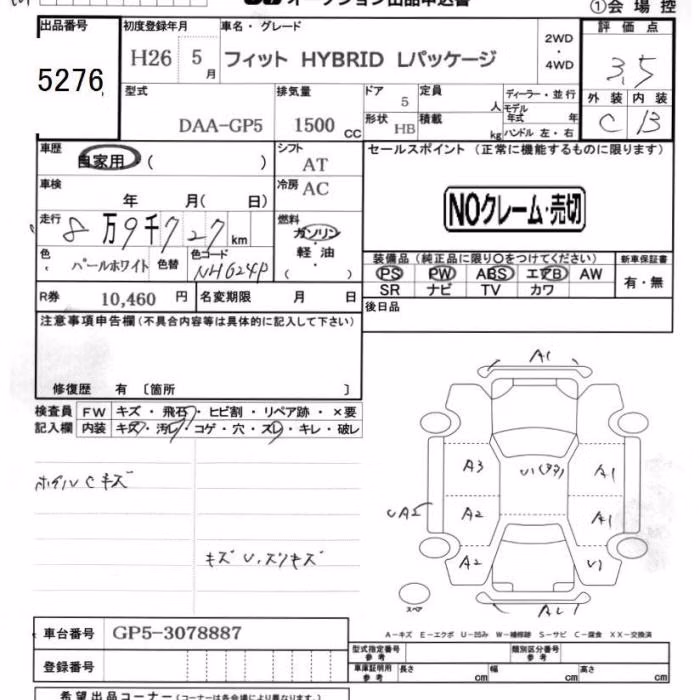 オークション出品申込書
①会場控
出品番号
5276
初度登録年月
H26 5 月
車名・グレード
フィット HYBRID Lパッケージ
2WD
・
4WD
評価点
3.5
外装 内装
C B
型式
DAA-GP5
排気量
1500 CC
ドア
5
定員
人
形状
HB
積載
kg
ディーラー・並行
モデル年式 年
ハンドル 左・右
車歴
自家用・( )
シフト
AT
車検
年 月( 日)
冷房
AC
走行
8万9千727km
燃料
ガソリン
・
軽油
・
( )
色
パールホワイト
色替
色コード
NH624P
R券
10,460 円
名変期限 月 日
セールスポイント(正常に機能するものに限ります)
NOクレーム・売切
装備品(純正品に限り○をつけてください)
PS PW ABS エアB AW
SR ナビ TV カワ
新車保証書
有・無
後日品
注意事項申告欄(不具合内容等は具体的に記入して下さい)
修復歴 有〔箇所 〕
検査員
記入欄
FW キズ・飛石・ヒビ割・リペア跡・×要
内装 キズ・汚レ・コゲ・穴・スレ・キレ・破レ
ホイルCキズ
キズU、スリキズ
A1
A3
A2
A2
A1
A1
U1
スペア
A-キズ E-エクボ U-凹み W-補修跡 S-サビ C-腐食 XX-交換済
車台番号
GP5-3078887
登録番号
型式指定番号
参考
類別区分番号
参考
車庫証明用
参考
長さ cm
幅 cm
高さ cm
希望出品コーナー(コーナーは各会場により異なります。)